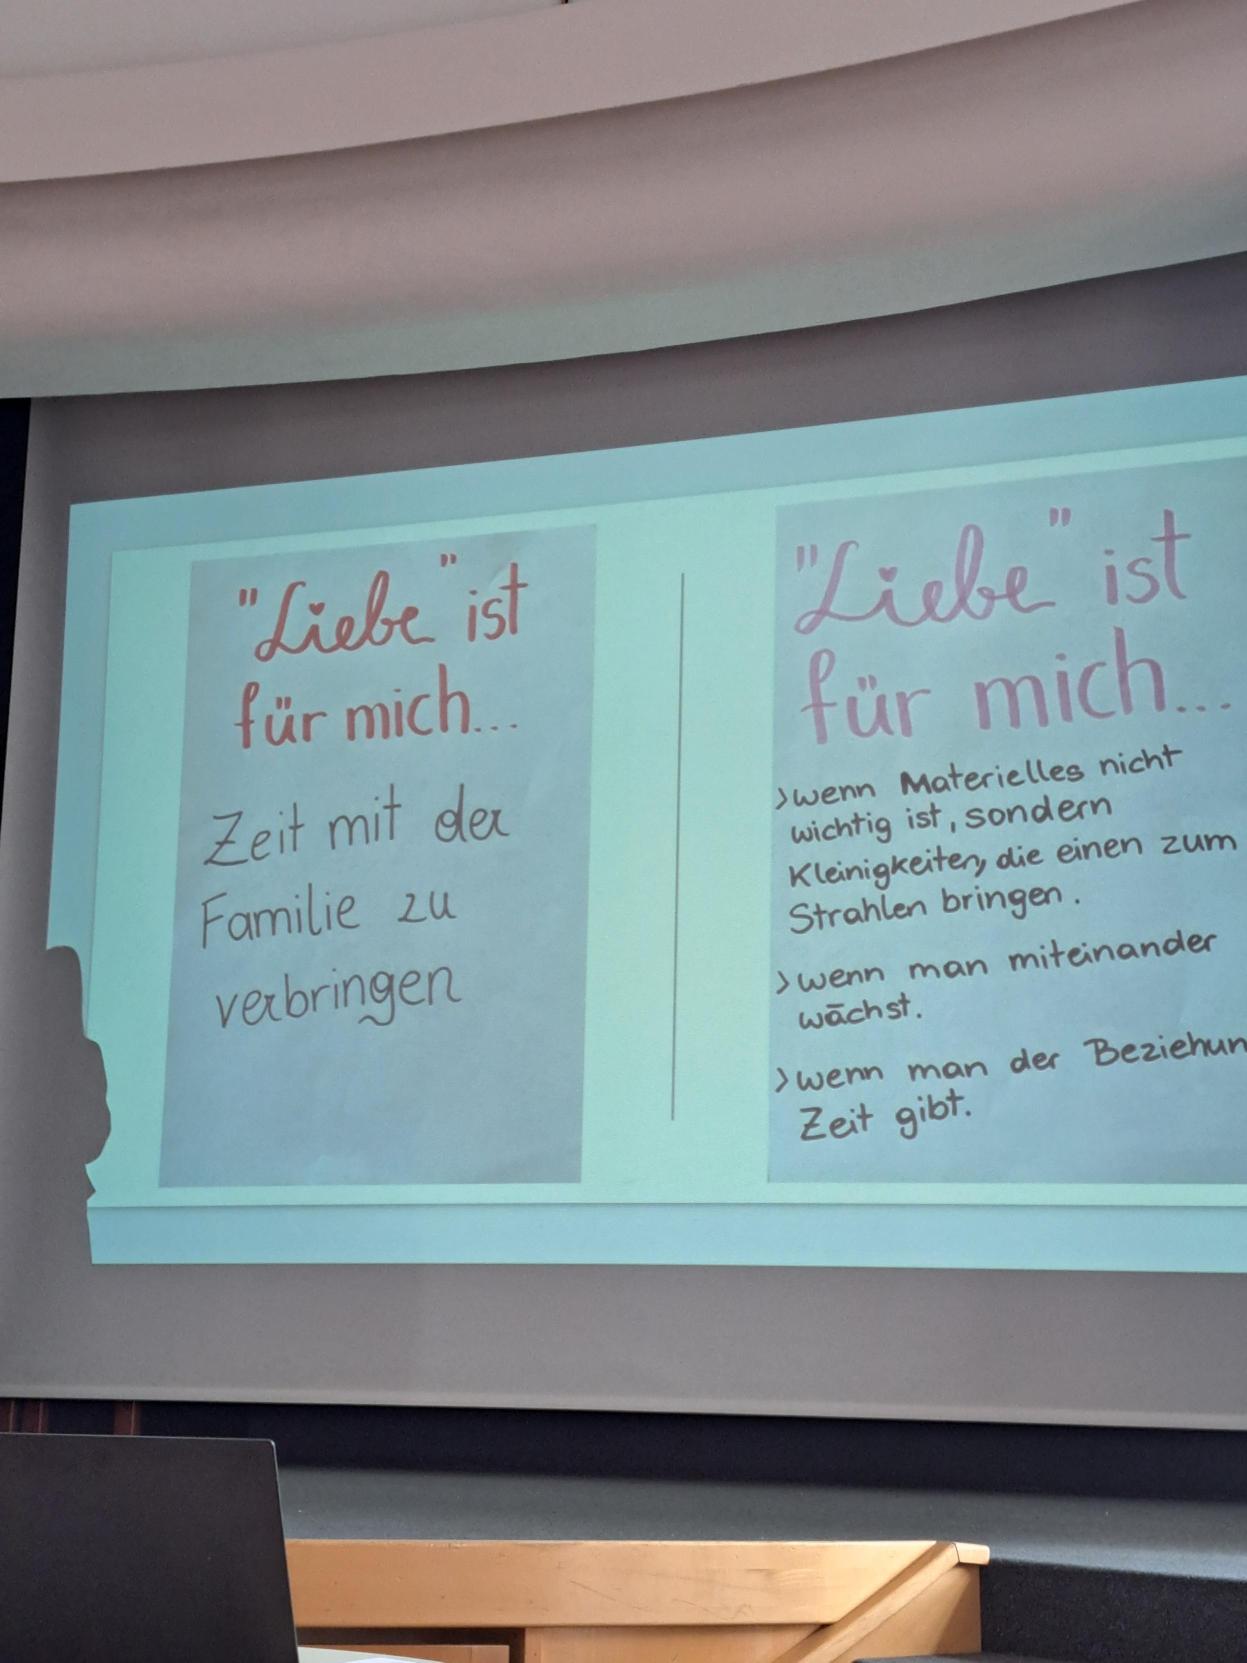 "Liebe" ist
für mich...
Zeit mit der
Familie zu
verbringen
"Liebe" ist
für mich...
>wenn Materielles nicht
wichtig ist, sondern
Kleinigkeiten, die einen zum
Strahlen bringen.
>wenn man miteinander
wächst.
>wenn man der Beziehun
Zeit gibt.